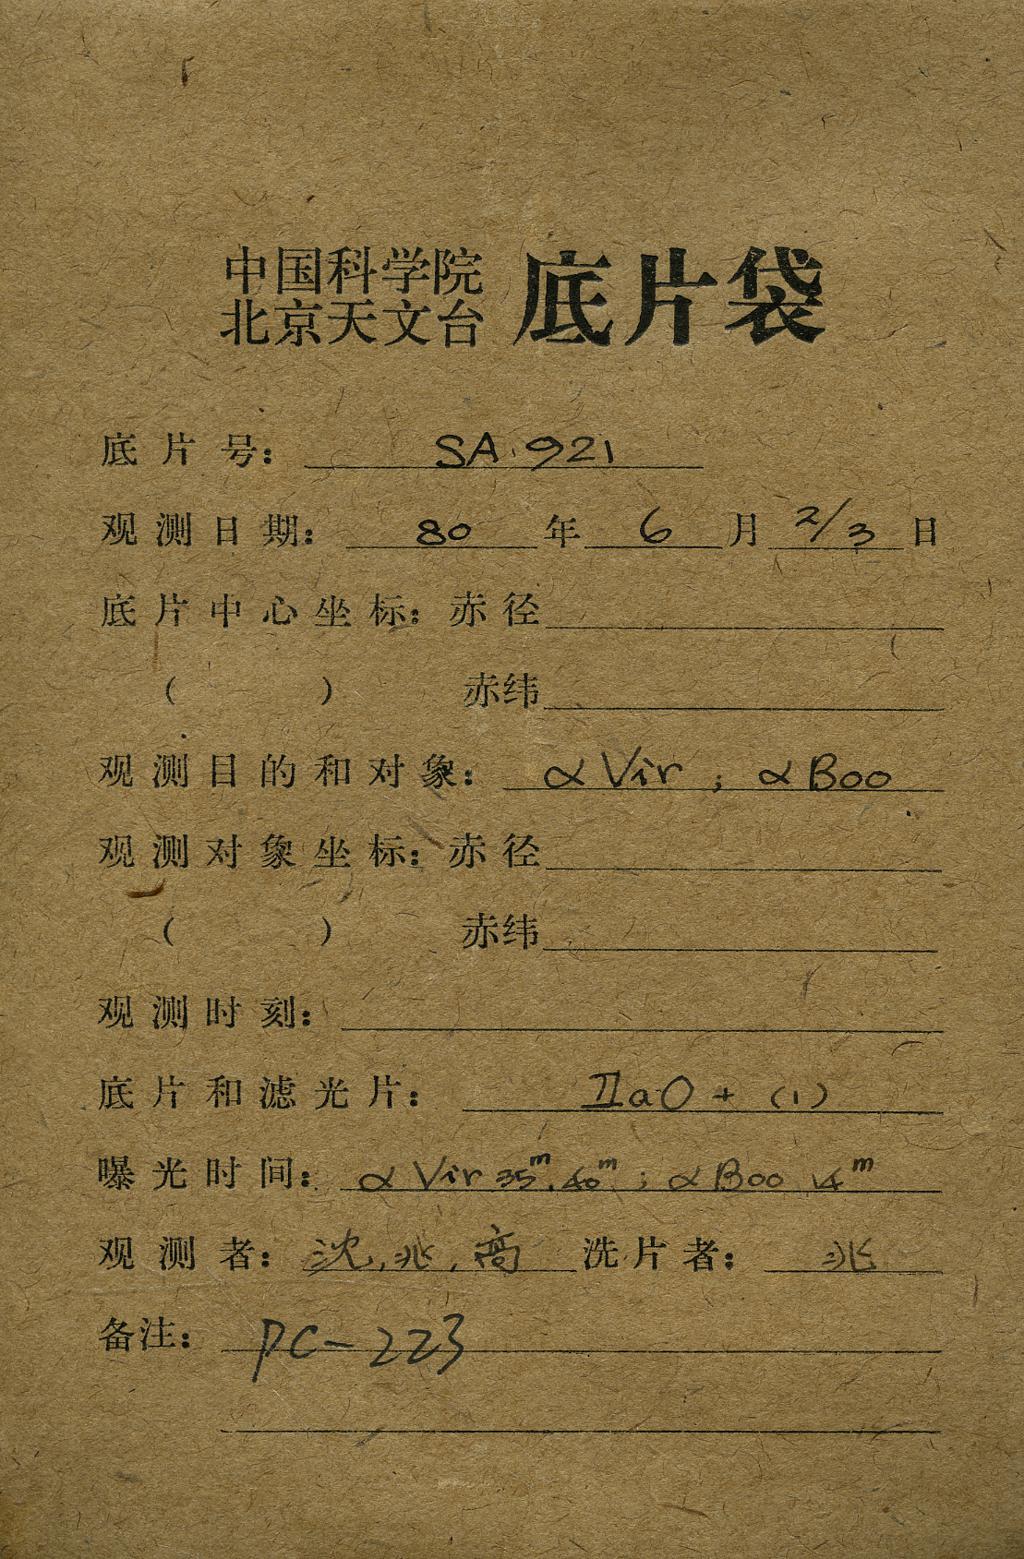 中国科学院
北京天文台 底片袋
底片号: SA 921
观测日期: 80 年 6 月 2/3 日
底片中心坐标: 赤径
( ) 赤纬
观测目的和对象: α Vir ; α Boo
观测对象坐标: 赤径
( ) 赤纬
观测时刻:
底片和滤光片: IIaO + (1)
曝光时间: α Vir 35m, 40m ; α Boo 14m
观测者: 沈, 兆, 高 洗片者: 兆
备注: PC-223